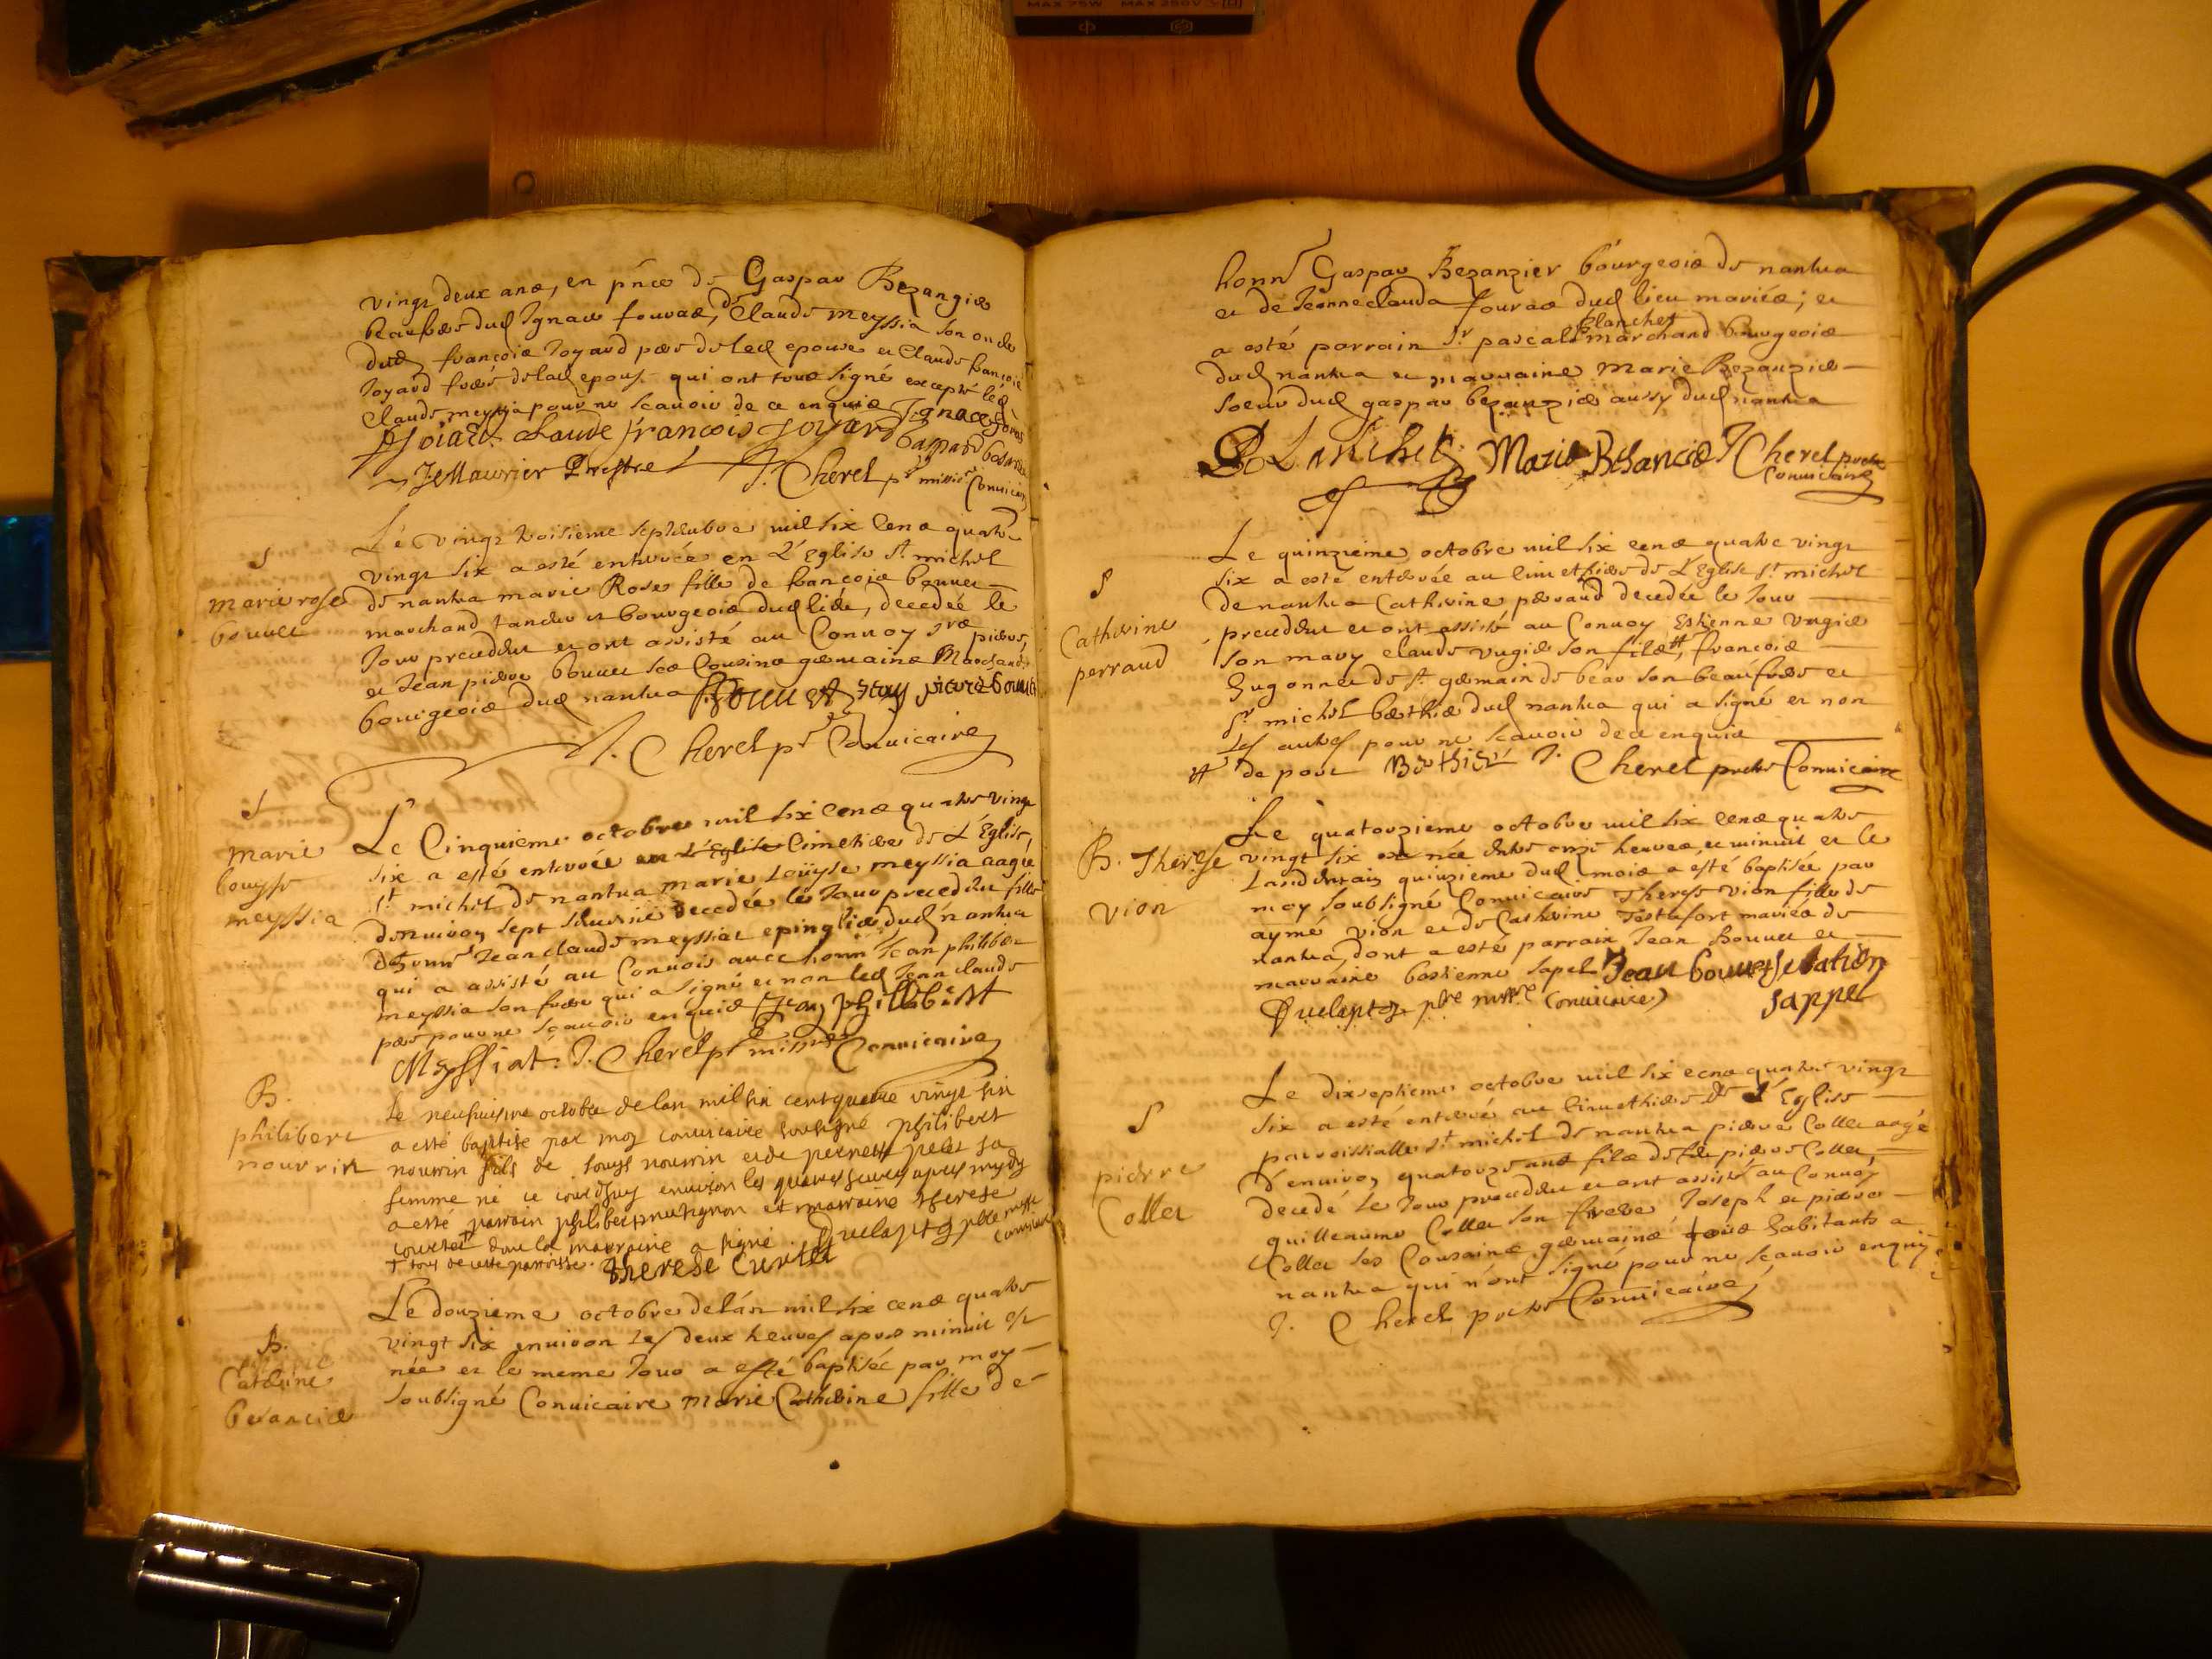 MAX 75W MAX 250V
vingt deux ans, en pnce de Gaspar Bezangier
beaufrere dud Ignace fouras, de Claude meyssia son oncle
dud francois Joyard pere de lad epouse et Claude francois
Joyard frere de lad epouse qui ont tous signé excepté led
Claude meyssia pour ne scavoir de ce enquis Ignace foras
Joiard Claude francois Joyard Gaspard
JeMaurier Prestre J. Cherel pr missre Convicaire
S
marie rose
bouvet
Le vingt troisieme septembre mil six cens quatre
vingt six a esté enterrée en L'Eglise st michel
de nantua marie Rose fille de francois bouvet
marchand tandeur et bourgeois dud lieu, decedée le
Jour precedent et ont assisté au Convoy srs pierre,
et Jean pierre bouvet ses Cousins germains Marchands
bourgeois dud nantua Bouvet Jean pierre bouvet
J. Cherel pr Convicaire
S
marie
louyse
meyssia
Le Cinquieme octobre mil six cens quatre vingt
six a esté enterrée en L'Eglise Cimetiere de L'Eglise
st michel de nantua marie Loüyse meyssia aagée
denviron sept semaines decedée le Jour precedent fille
d'honn Jean claude meyssiat epinglier dud nantua
qui a assisté au Convois avec honn Jean philibert
meyssia son frere qui a signé et non led Jean claude
pere pour ne sçavoir enquis Jean phillibert
Meyssiat J. Cherel pr missre Convicaire
B.
philibert
nourrin
Le neufuiesme octobre de lan mil six cent quatre vingt six
a esté baptise par moy convicaire soussigné philibert
nourrin fils de louys nourrin et de pernette pelet sa
femme né ce iourdhuy environ les quatres heures apres mydy
a esté parrain philibert prutignon et marraine therese
courtet dont la marraine a signé. Duclapt ptre missre convicaire
+ tous de cette parroisse. therese Curtet
B.
Catherine
besancier
Le douzieme octobre de lán mil six cens quatre
vingt six environ les deux heures apres minuit est
née et le meme Jour a esté baptisée par moy
soubsigné Convicaire Marie Catherine fille de
honn Gaspar Bezanzier bourgeois de nantua
et de Jeanne clauda fouras dud lieu mariés; et
a esté parrain sr pascal blanchet marchand bourgeois
dud nantua et marraine Marie Bezanzier
soeur dud gaspar bezanzier aussy dud nantua
Blanchet Marie Besancier J Cherel prebtre
Convicaire
S
Catherine
perraud
Le quinzieme octobre mil six cens quatre vingt
six a esté enterrée au cimethiere de L'Eglise st michel
de nantua Catherine perraud decedée le Jour
precedent et ont assisté au Convoy Estienne vugier
son mary claude vugier son fils # francois
hugonnet de st germain de beau son beaufrere et
sr michel berthier dud nantua qui a signé et non
les autres pour ne scavoir de ce enquis
# de port Berthier J. Cherel prebtre Convicaire
B. Therese
vion
Le quatorzieme octobre mil six cens quatre
vingt six est née entre onze heures et minuit et le
Lendemain quinzieme dud mois a esté baptisée par
moy soubsigné Convicaire Therese vion fille de
aymé vion et de Catherine Testafort mariés de
nantua, dont a esté parrain Jean Bouvet et
marraine bastienne sapel Jean bouvet sebatien
Duclapt ptre missre Convicaire sappel
S
pierre
Collet
Le dixseptieme octobre mil six cens quatre vingt
six a esté enterré au cimethiere de L'Eglise
parroissialle st michel de nantua pierre Collet aagé
d'environ quatorze ans fils de feu pierre Collet,
decedé le Jour precedent et ont assisté au Convoy
guillaume Collet son frere Joseph et pierre
Collet ses Cousains germains tous habitants a
nantua qui n'ont signé pour ne scavoir enquis
J. Cherel prebtre Convicaire